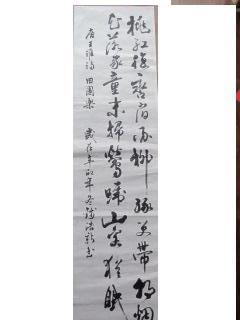 桃紅復含宿雨柳綠更帶朝煙
花落家童未掃鶯啼山客猶眠
唐王維詩 田園樂